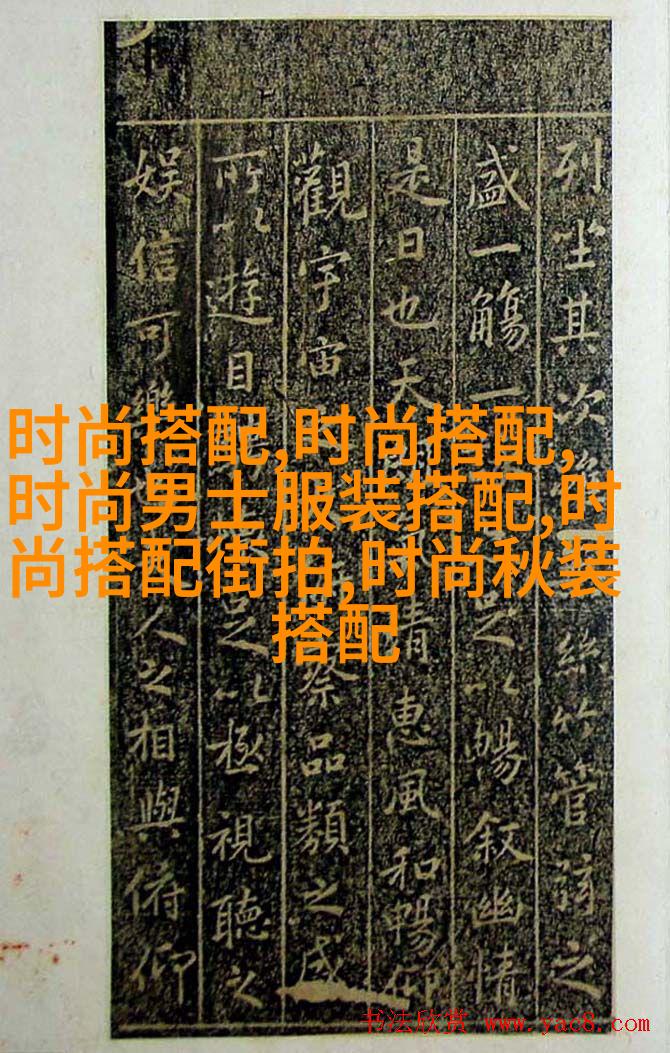 时尚搭配,时尚搭配,
时尚男士服装搭配,时
尚搭配街拍,时尚秋装
搭配
列坐其次 絲竹管弦之
盛一觴一 足以暢叙幽情
是日也天 清惠風和暢仰
觀宇宙 察品類之盛
所以遊目 足以極視聽之
娱信可樂 人之相與俯仰
书法欣赏 www.yac8.com